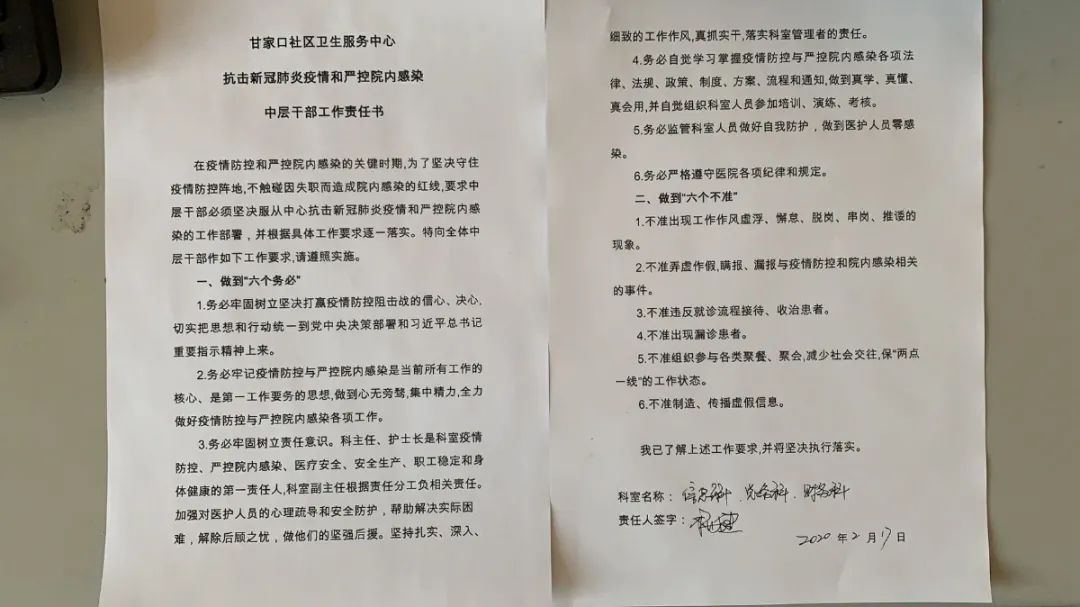 甘家口社区卫生服务中心
抗击新冠肺炎疫情和严控院内感染
中层干部工作责任书
在疫情防控和严控院内感染的关键时期,为了坚决守住
疫情防控阵地,不触碰因失职而造成院内感染的红线,要求中
层干部必须坚决服从中心抗击新冠肺炎疫情和严控院内感
染的工作部署，并根据具体工作要求逐一落实。特向全体中
层干部作如下工作要求,请遵照实施。
一、做到“六个务必”
1.务必牢固树立坚决打赢疫情防控阻击战的信心、决心,
切实把思想和行动统一到党中央决策部署和习近平总书记
重要指示精神上来。
2.务必牢记疫情防控与严控院内感染是当前所有工作的
核心、是第一工作要务的思想,做到心无旁骛,集中精力,全力
做好疫情防控与严控院内感染各项工作。
3.务必牢固树立责任意识。科主任、护士长是科室疫情
防控、严控院内感染、医疗安全、安全生产、职工稳定和身
体健康的第一责任人,科室副主任根据责任分工负相关责任。
加强对医护人员的心理疏导和安全防护，帮助解决实际困
难，解除后顾之忧，做他们的坚强后援。坚持扎实、深入、
细致的工作作风,真抓实干,落实科室管理者的责任。
4.务必自觉学习掌握疫情防控与严控院内感染各项法
律、法规、政策、制度、方案、流程和通知,做到真学、真懂、
真会用,并自觉组织科室人员参加培训、演练、考核。
5.务必监管科室人员做好自我防护，做到医护人员零感
染。
6.务必严格遵守医院各项纪律和规定。
二、做到“六个不准”
1.不准出现工作作风虚浮、懈怠、脱岗、串岗、推诿的
现象。
2.不准弄虚作假,瞒报、漏报与疫情防控和院内感染相关
的事件。
3.不准违反就诊流程接待、收治患者。
4.不准出现漏诊患者。
5.不准组织参与各类聚餐、聚会,减少社会交往,保“两点
一线”的工作状态。
6.不准制造、传播虚假信息。
我已了解上述工作要求,并将坚决执行落实。
科室名称： 信息科、总务科、财务科
责任人签字：
2020 年 2 月 17 日